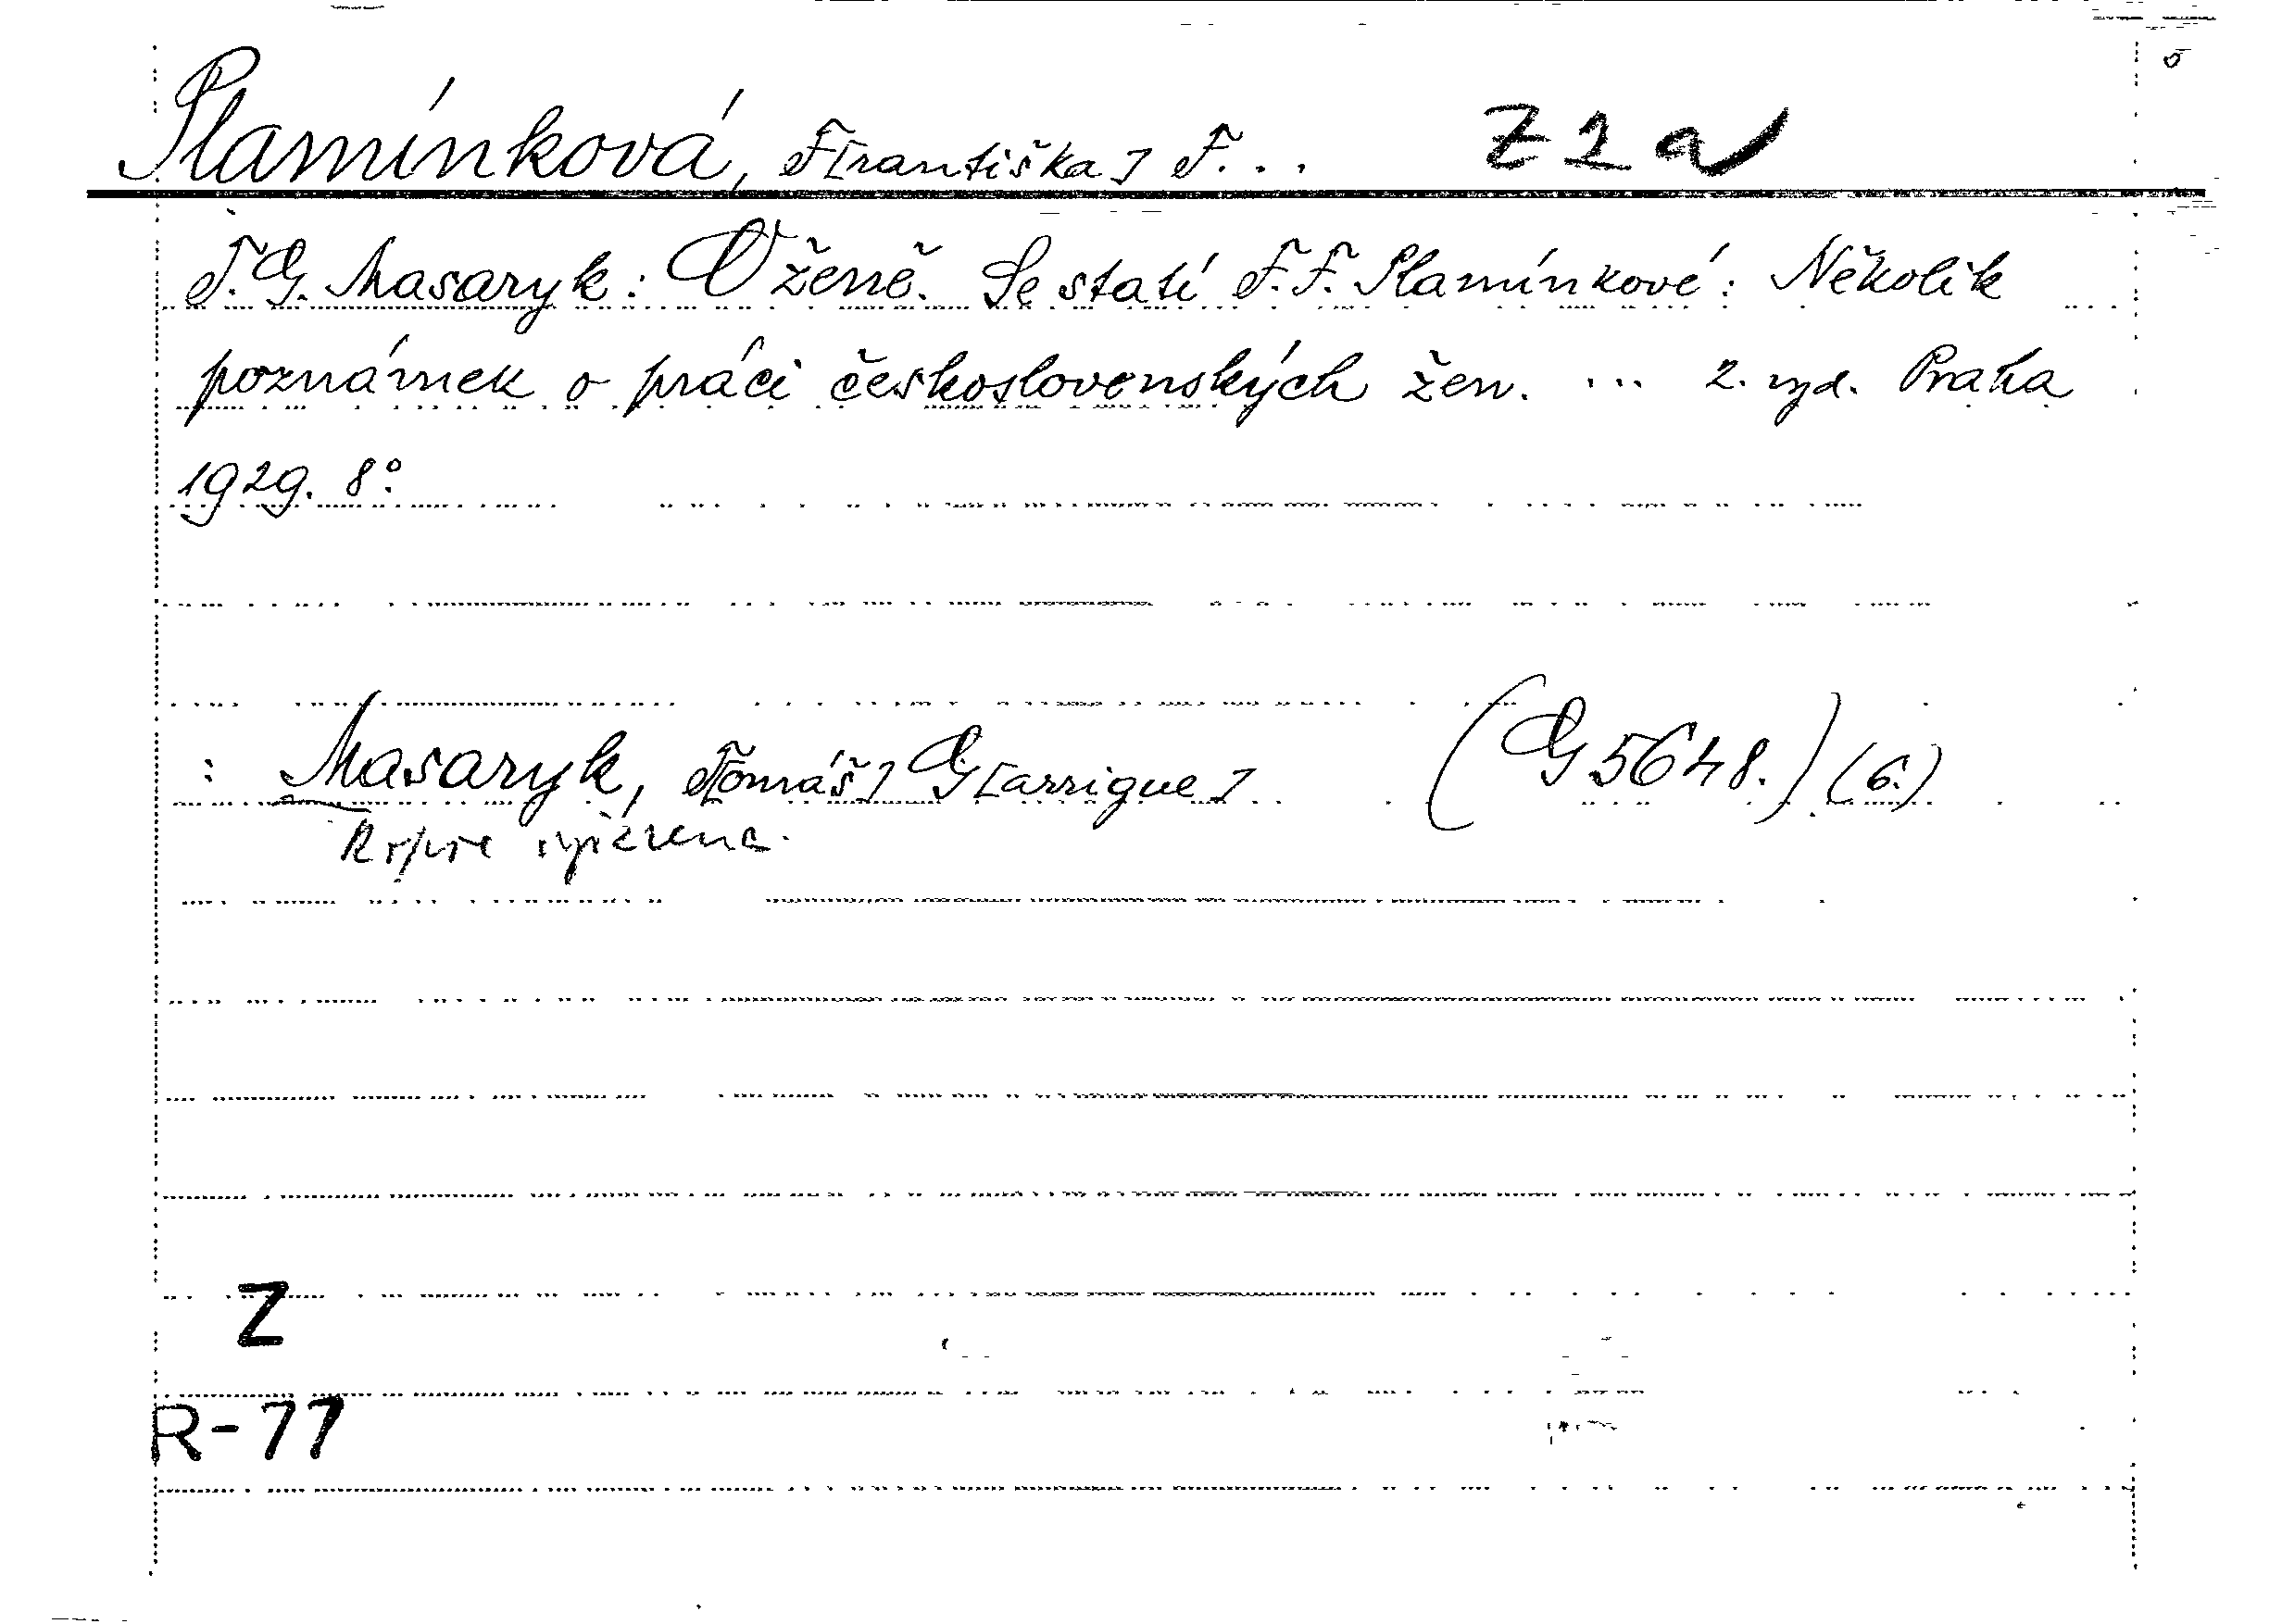 Plamínková, F[rantiška] F... Z 2 a
T. G. Masaryk: O ženě. Se statí F. F. Plamínkové: Několik
poznámek o práci československých žen. ... 2. vyd. Praha
1929. 8°.
: Masaryk, T[omáš] G[arrigue] (G 5648.) (6.)
Z
R-77